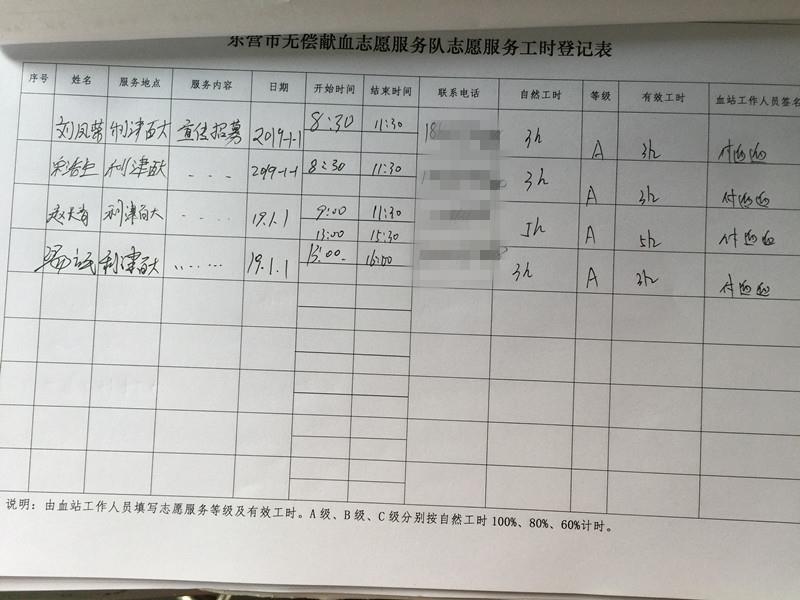 东营市无偿献血志愿服务队志愿服务工时登记表
序号 姓名 服务地点 服务内容 日期 开始时间 结束时间 联系电话 自然工时 等级 有效工时 血站工作人员签名
刘凤荣 利津百大 宣传招募 2019-1-1 8:30 11:30 3h A 3h
利津百大 2019-1-1 8:30 11:30 3h A 3h
利津百大 19.1.1 9:00 11:30 5h A 5h
13:00 15:30
利津百大 19.1.1 13:00 16:00 3h A 3h
说明：由血站工作人员填写志愿服务等级及有效工时。A级、B级、C级分别按自然工时100%、80%、60%计时。